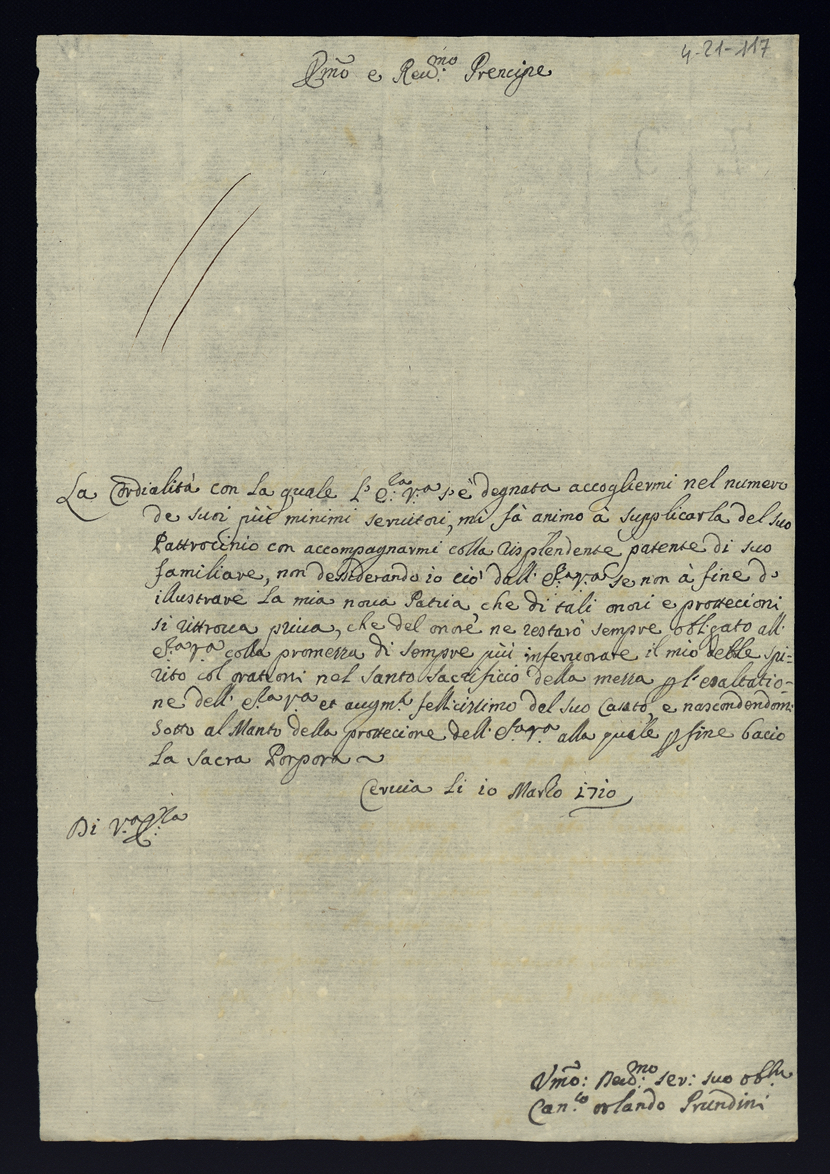 4-21-117
Emo e Reu:mo Prencipe
La Cordialità con La quale L' E:za V.a s'è degnata accogliermi nel numero
de suoi più minimi seruitori, mi fà animo à supplicarla del suo
Pattrocinio con accompagnarmi colla risplendente patente di suo
familiare, non desiderando io ciò dall' E.a V.a se non à fine d'
illustrare La mia noua Patria, che di tali onori e prottecioni
si rittroua priua, che del onore ne restarò sempre obligato all'
E.a V.a colla promessa di sempre più inferuorare il mio debile spi=
rito col orationi nel santo sacrificio della messa p l'esaltatio=
ne dell' E.a V.a et augm.to fellicissimo del suo Casato, e nascondendomi
sotto al Manto della prottecione dell' E.a V.a alla quale p fine bacio
La sacra Porpora ~
Ceruia Li 10 Marzo 1710
Di V.a
Vmo: Deu:mo ser: suo obl.
Can.co orlando